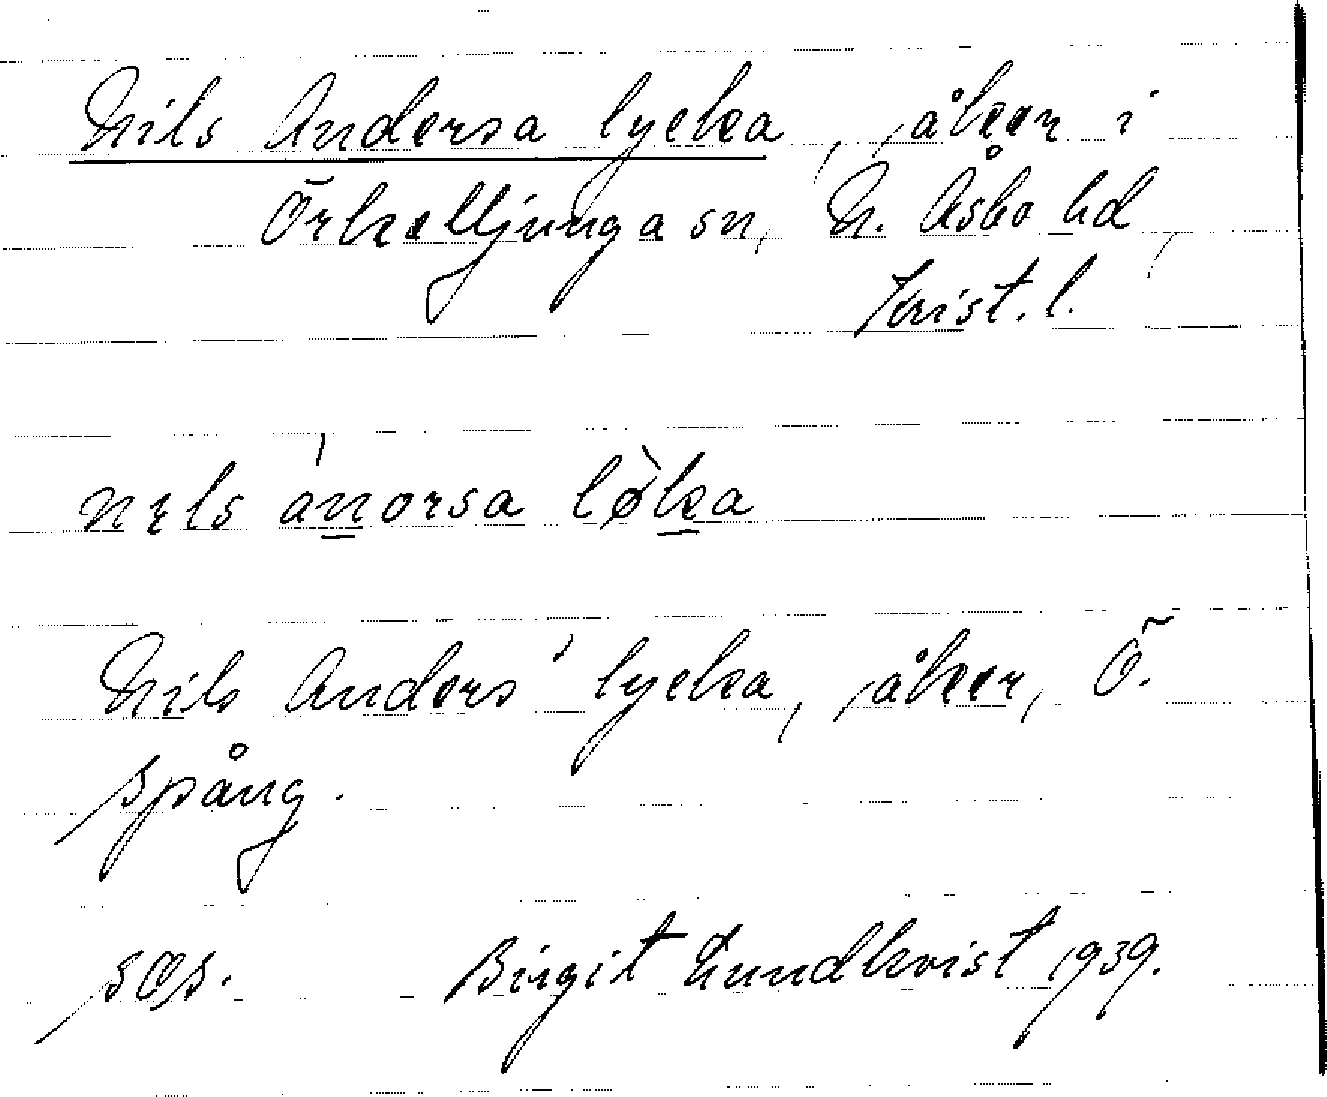 Nils Andersa lycka, åker i
Örkelljunga sn, N. Åsbo hd,
Krist. l.
nɩls ànorsa lø̀ka
Nils Anders' lycka, åker, Ö.
Spång.
sɑs. Birgit Lundkvist 1939.